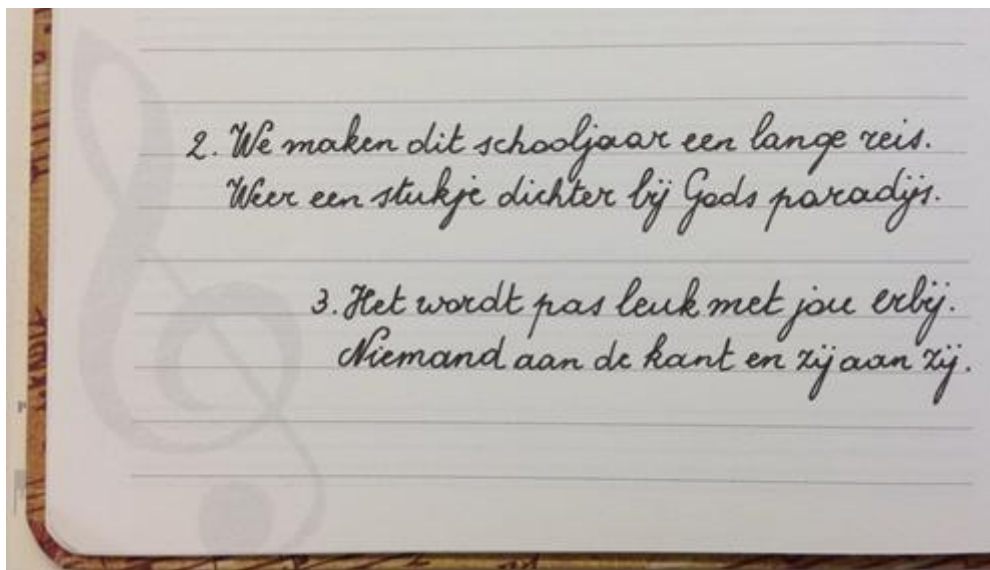 2. We maken dit schooljaar een lange reis.
Weer een stukje dichter bij Gods paradijs.
3. Het wordt pas leuk met jou erbij.
Niemand aan de kant en zij aan zij.